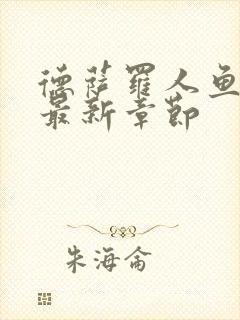 德萨罗人鱼
最新章节
朱海仑